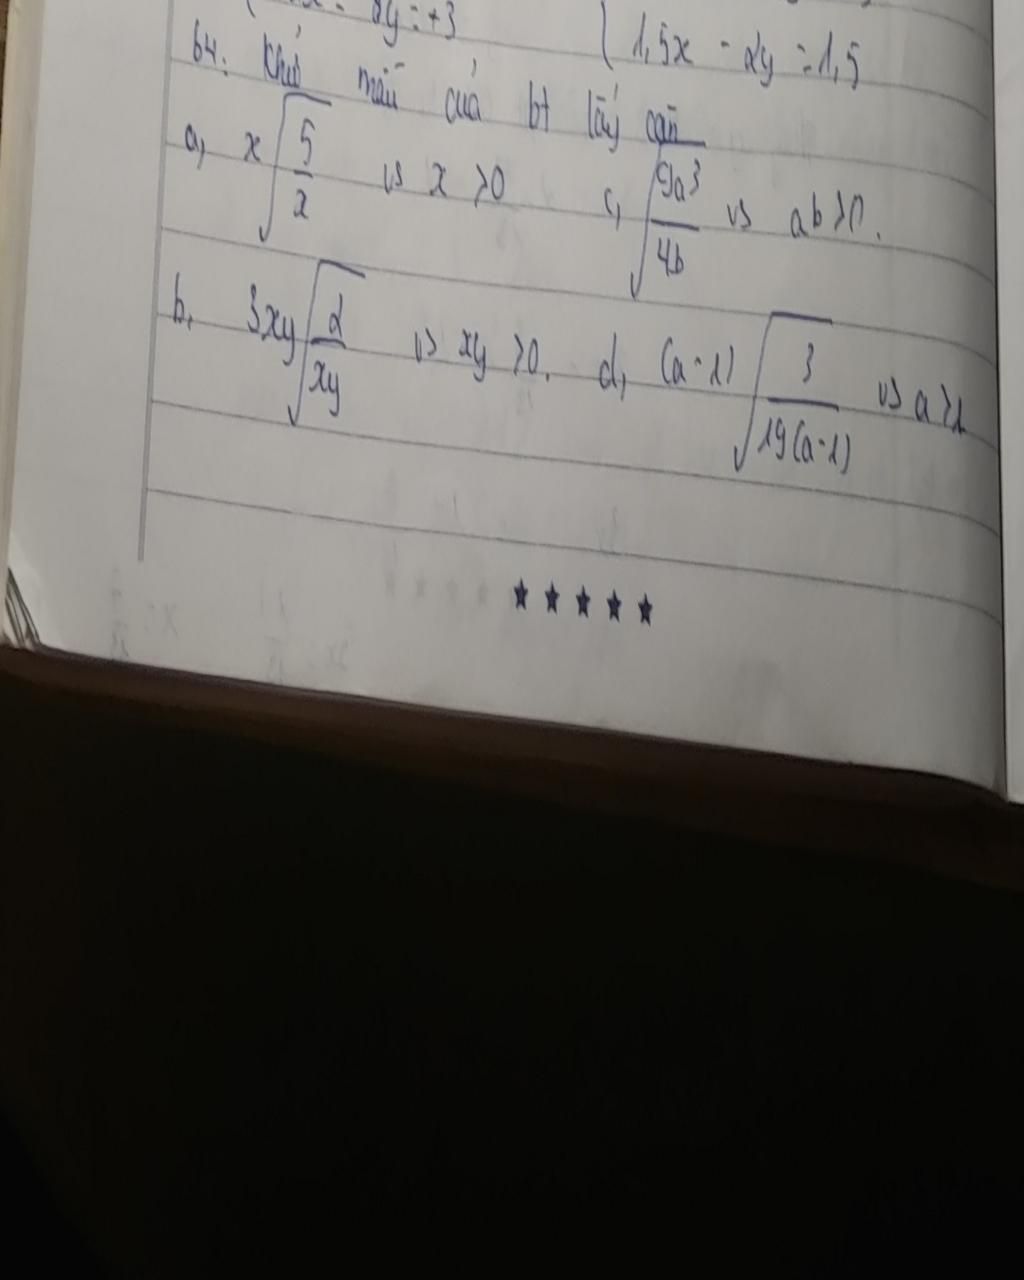 8y = +3
1,5x - 2y = 1,5
b4: Khử mẫu của bt lấy căn
a, x√(5/x) vs x > 0 c, √(9a³/4b) vs ab > 0.
b, 3xy√(2/xy) vs xy > 0. d, (a-1)√(3/19(a-1)) vs a > 1